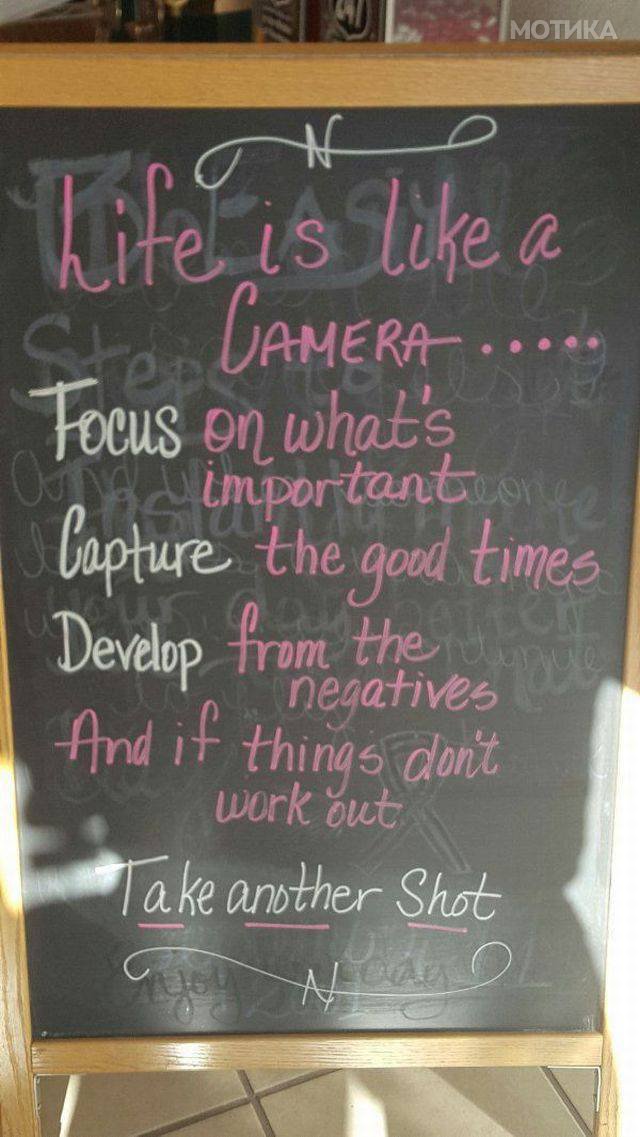 МОТИКА
N
Life is like a
CAMERA.....
Focus on what's
important
Capture the good times
Develop from the
negatives
And if things don't
work out
Take another Shot
N